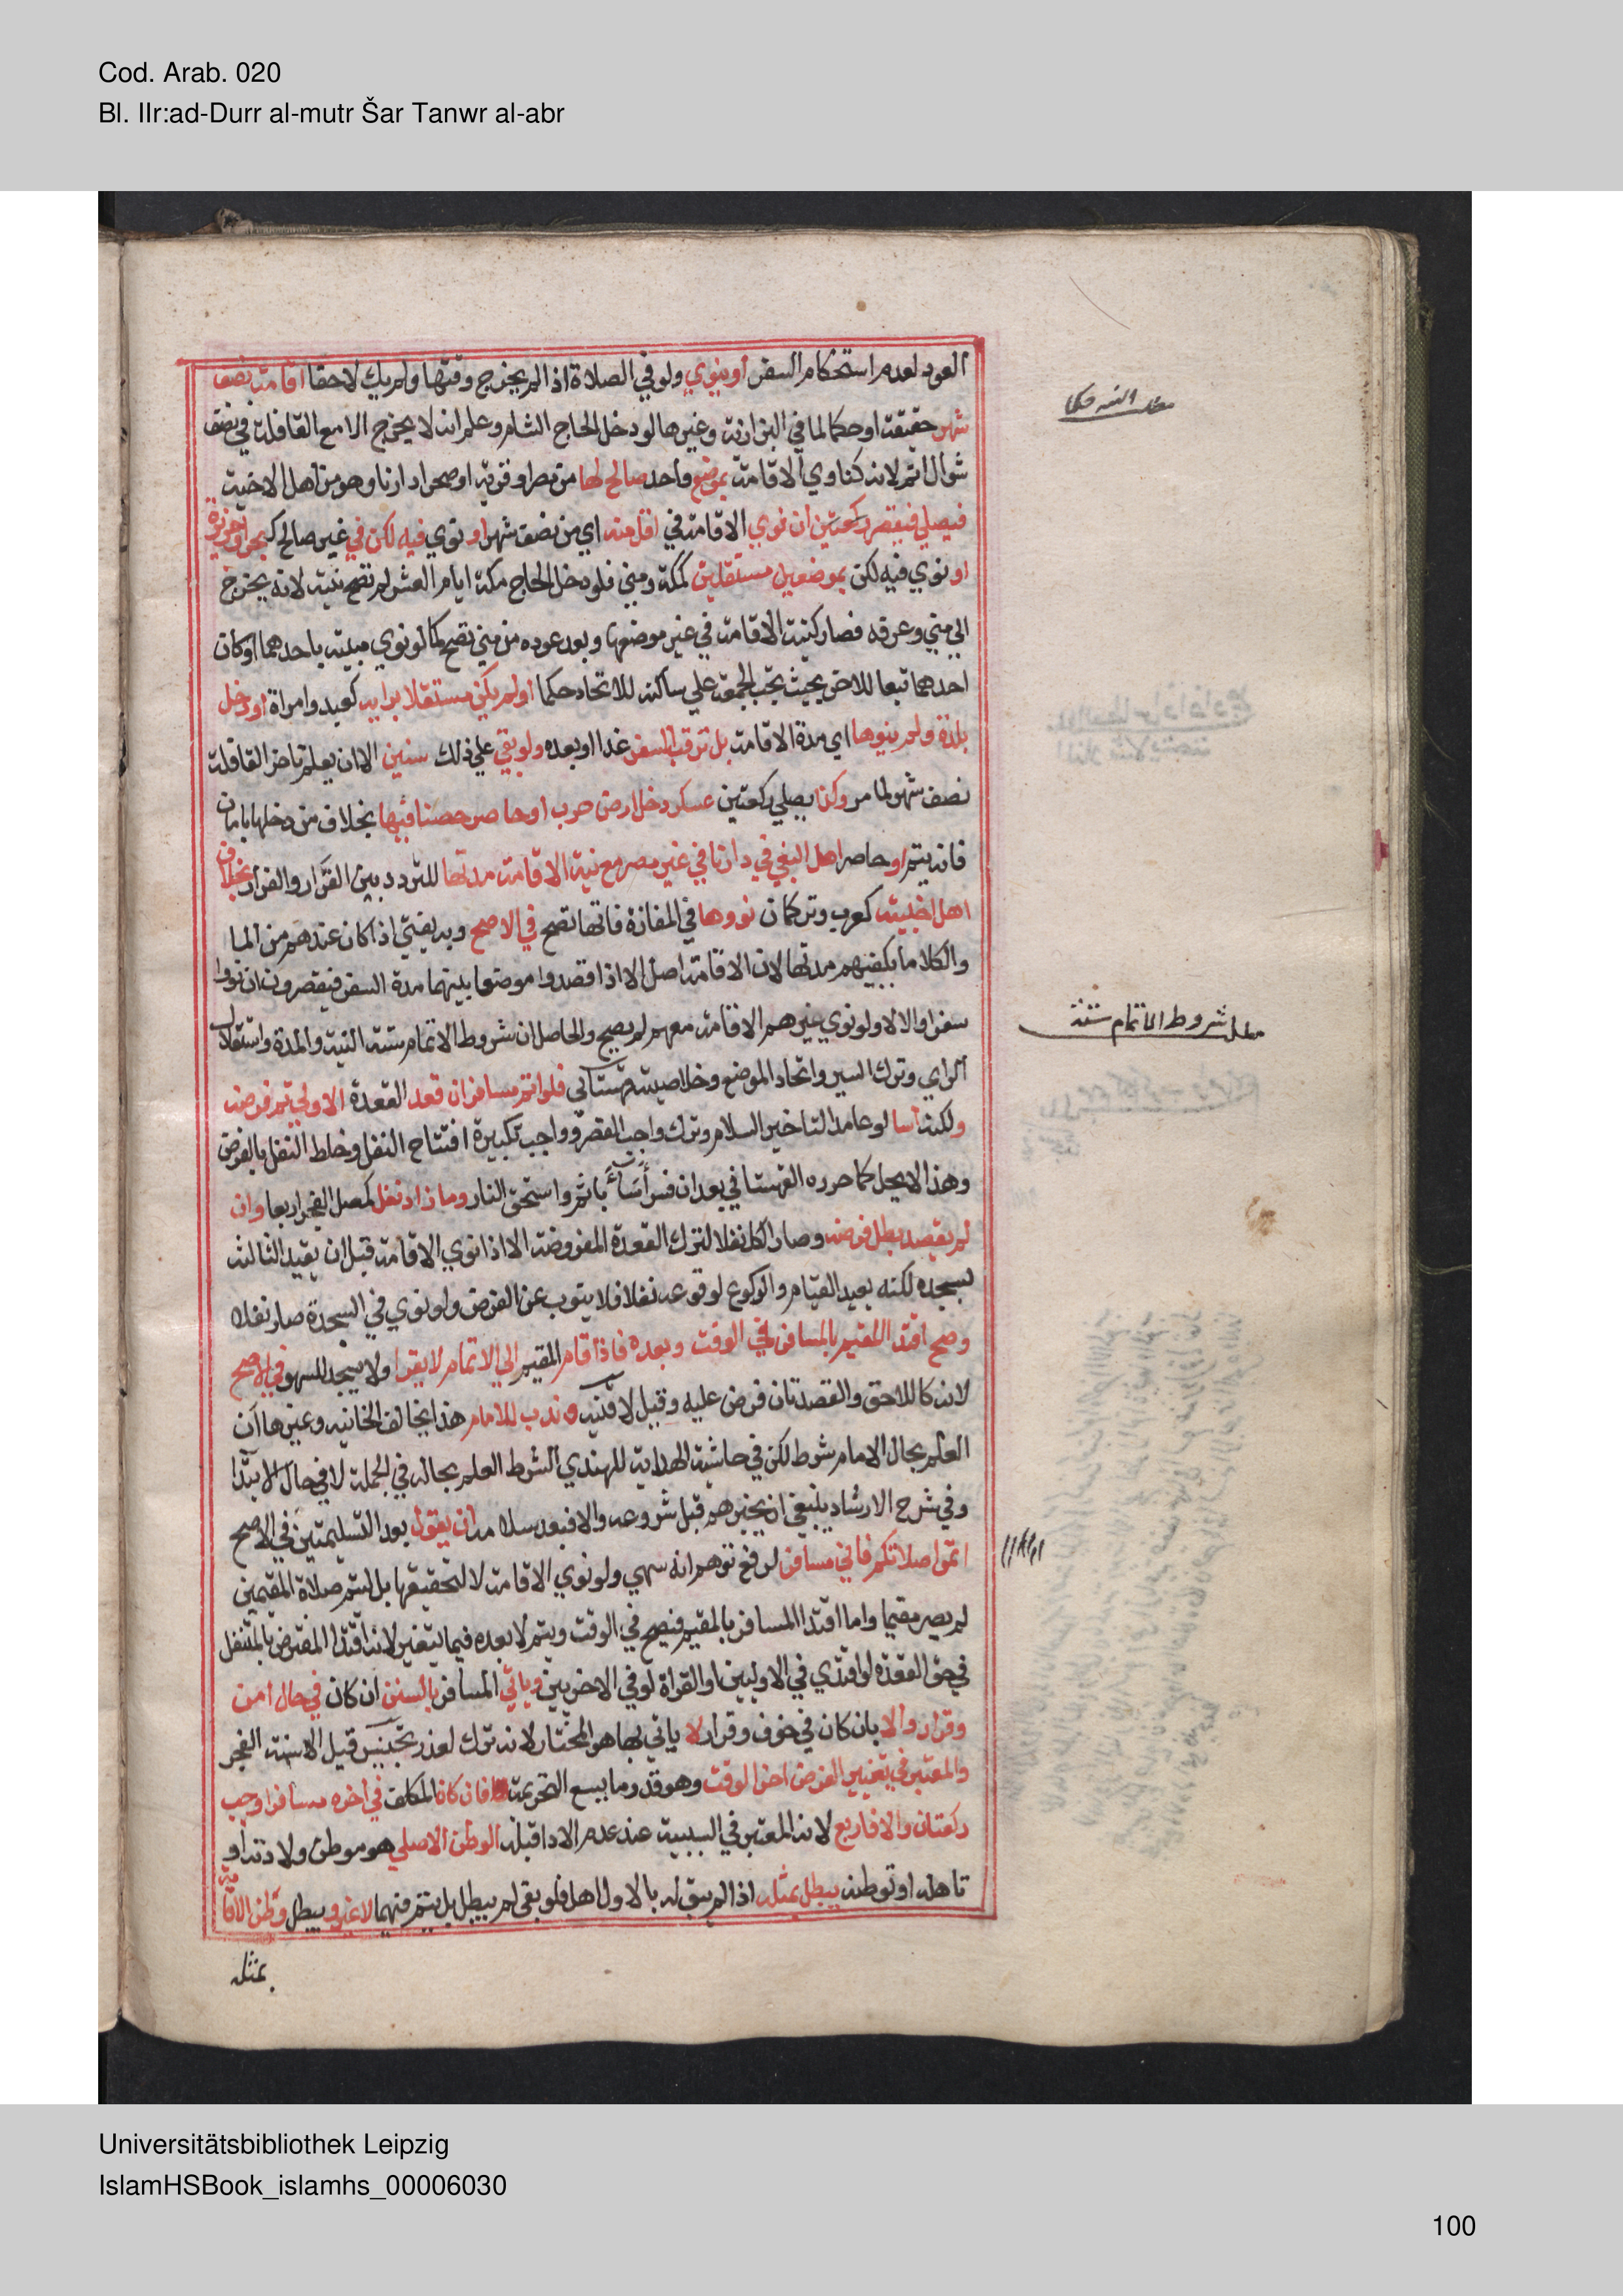 Cod. Arab. 020
Bl. IIr:ad-Durr al-mutr Šar Tanwr al-abr
العود لعدم استحكام السفر او ينوي ولو في الصلاة اذا لم يخرج وقتها ولم يك لاحقا اقامت نصف
شهر حقيقة او حكما لما في البزازية وغيرها لو دخل الحاج الشام وعلم انه لا يخرج الا مع القافلة في نصف
شوال اتم لانه كناوي الاقامة بموضع واحد صالح لها من مصر او قرية او صحرا دارنا وهو من اهل الاخبية
فيصلي فيقصر ركعتين ان نوي الاقامة في اقل منه اي من نصف شهر او نوي فيه لكن في غير صالح كبحر او جزيرة
او نوي فيه لكن بموضعين مستقلين كمكة ومني فلو دخل الحاج مكة ايام العشر لم تصح نيته لانه يخرج
الي مني وعرفه فصار كنية الاقامة في غير موضعها وبعد عوده من مني تصح كما لو نوي مبيته باحدهما او كان
احدهما تبعا للاخر بحيث تجب الجمعة علي ساكنه للاتحاد حكما او لم يكن مستقلا برايه كعبد وامراة او دخل
بلدة ولم ينوها اي مدة الاقامة بل ترقب السفر غدا او بعده ولو بقي علي ذلك سنين الا ان يعلم تاخر القافلة
نصف شهر لما مر وكذا يصلي ركعتين عسكر دخل ارض حرب او حاصر حصنا فيها بخلاف من دخلها بامان
فانه يتم او حاصر اهل البغي في دارنا في غير مصر مع نية الاقامة مدتها للتردد بين القرار والفرار بخلاف
اهل اخبية كعرب وتركمان نووها في المفازة فانها تصح في الاصح وبه يفتي اذا كان عندهم من الما
والكلا ما يكفيهم مدتها لان الاقامة اصل الا اذا قصدوا موضعا بينهما مدة السفر فيقصرون ان نووا
سفرا والا لا ولو نوي غيرهم الاقامة معهم لم يصح والحاصل ان شروط الاتمام ستة النية والمدة واستقلال
الراي وترك السير واتحاد الموضع وخلاصيته قهستاني فلو اتم مسافر ان قعد القعدة الاولي تم فرضه
ولكنه اسا لو عامدا لتاخير السلام وترك واجب القصر وواجب تكبيرة افتتاح النفل وخلط النفل بالفرض
وهذا لا يحل كما حرره القهستاني بعد ان فسر أساء باثم واستحق النار وما زاد نفل كمصل الفجر اربعا وان
لم يقصد بطل فرضه وصار الكل نفلا لترك القعدة المفروضة الا اذا نوي الاقامة قبل ان يقيد الثالثة
لسجده لكنه يعيد القيام والركوع لوقوعه نفلا فلا ينوب عن الفرض ولو نوي في السجدة صار نفلا
وصح اقتدا المقيم بالمسافر في الوقت وبعده فاذا قام المقيم الي الاتمام لا يقرا ولا يسجد للسهو في الاصح
لانه كاللاحق والقعدتان فرض عليه وقيل لا قنيه وندب للامام هذا يخالف الخانيه وغيرها ان
العلم بحال الامام شرط لكن في حاشية الهداية للهندي الشرط العلم بحاله في الجملة لا في حال الابتدا
وفي شرح الارشاد ينبغي ان يخبرهم قبل شروعه والا فبعد سلامه ان يقول بعد التسليمتين في الاصح
اتموا صلاتكم فاني مسافر لدفع توهم انه سهي ولو نوي الاقامة لا لتحقيقها بل ليتم صلاة المقيمين
لم يصر مقيما واما اقتدا المسافر بالمقيم فيصح في الوقت ويتم لا بعده فيما يتغير لانه اقتدا المفترض بالمتنفل
في حق القعده لو اقتدي في الاوليين او القراة لو في الاخريين وياتي المسافر بالسنن ان كان في حال امن
وقرار والا بان كان في خوف وفرار لا ياتي بها هو المختار لانه ترك لعذر تجنيس قيل الا سنة الفجر
والمعتبر في تغيير الفرض اخر الوقت وهو قدر ما يسع التحريمة فان كان المكلف في اخره مسافرا وجب
ركعتان والا فاربع لانه المعتبر في السببية عند عدم الادا قبله الوطن الاصلي هو موطن ولادته او
تاهله او توطنه يبطل بمثله اذا لم يبق له بالاول اهل فلو بقي لم يبطل بل يتم فيهما لا غير ويبطل وطن الاقامة
بمثله
مطلب شروط الاتمام ستة
Universitätsbibliothek Leipzig
IslamHSBook_islamhs_00006030
100